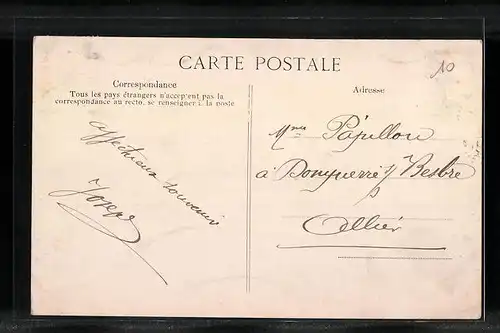 CARTE POSTALE
10
Correspondance
Tous les pays étrangers n'acceptent pas la
correspondance au recto, se renseigner à la poste
Adresse
affectueux souvenir
Joseph
Mme Papillon
à Dompierre s/ Besbre
Allier